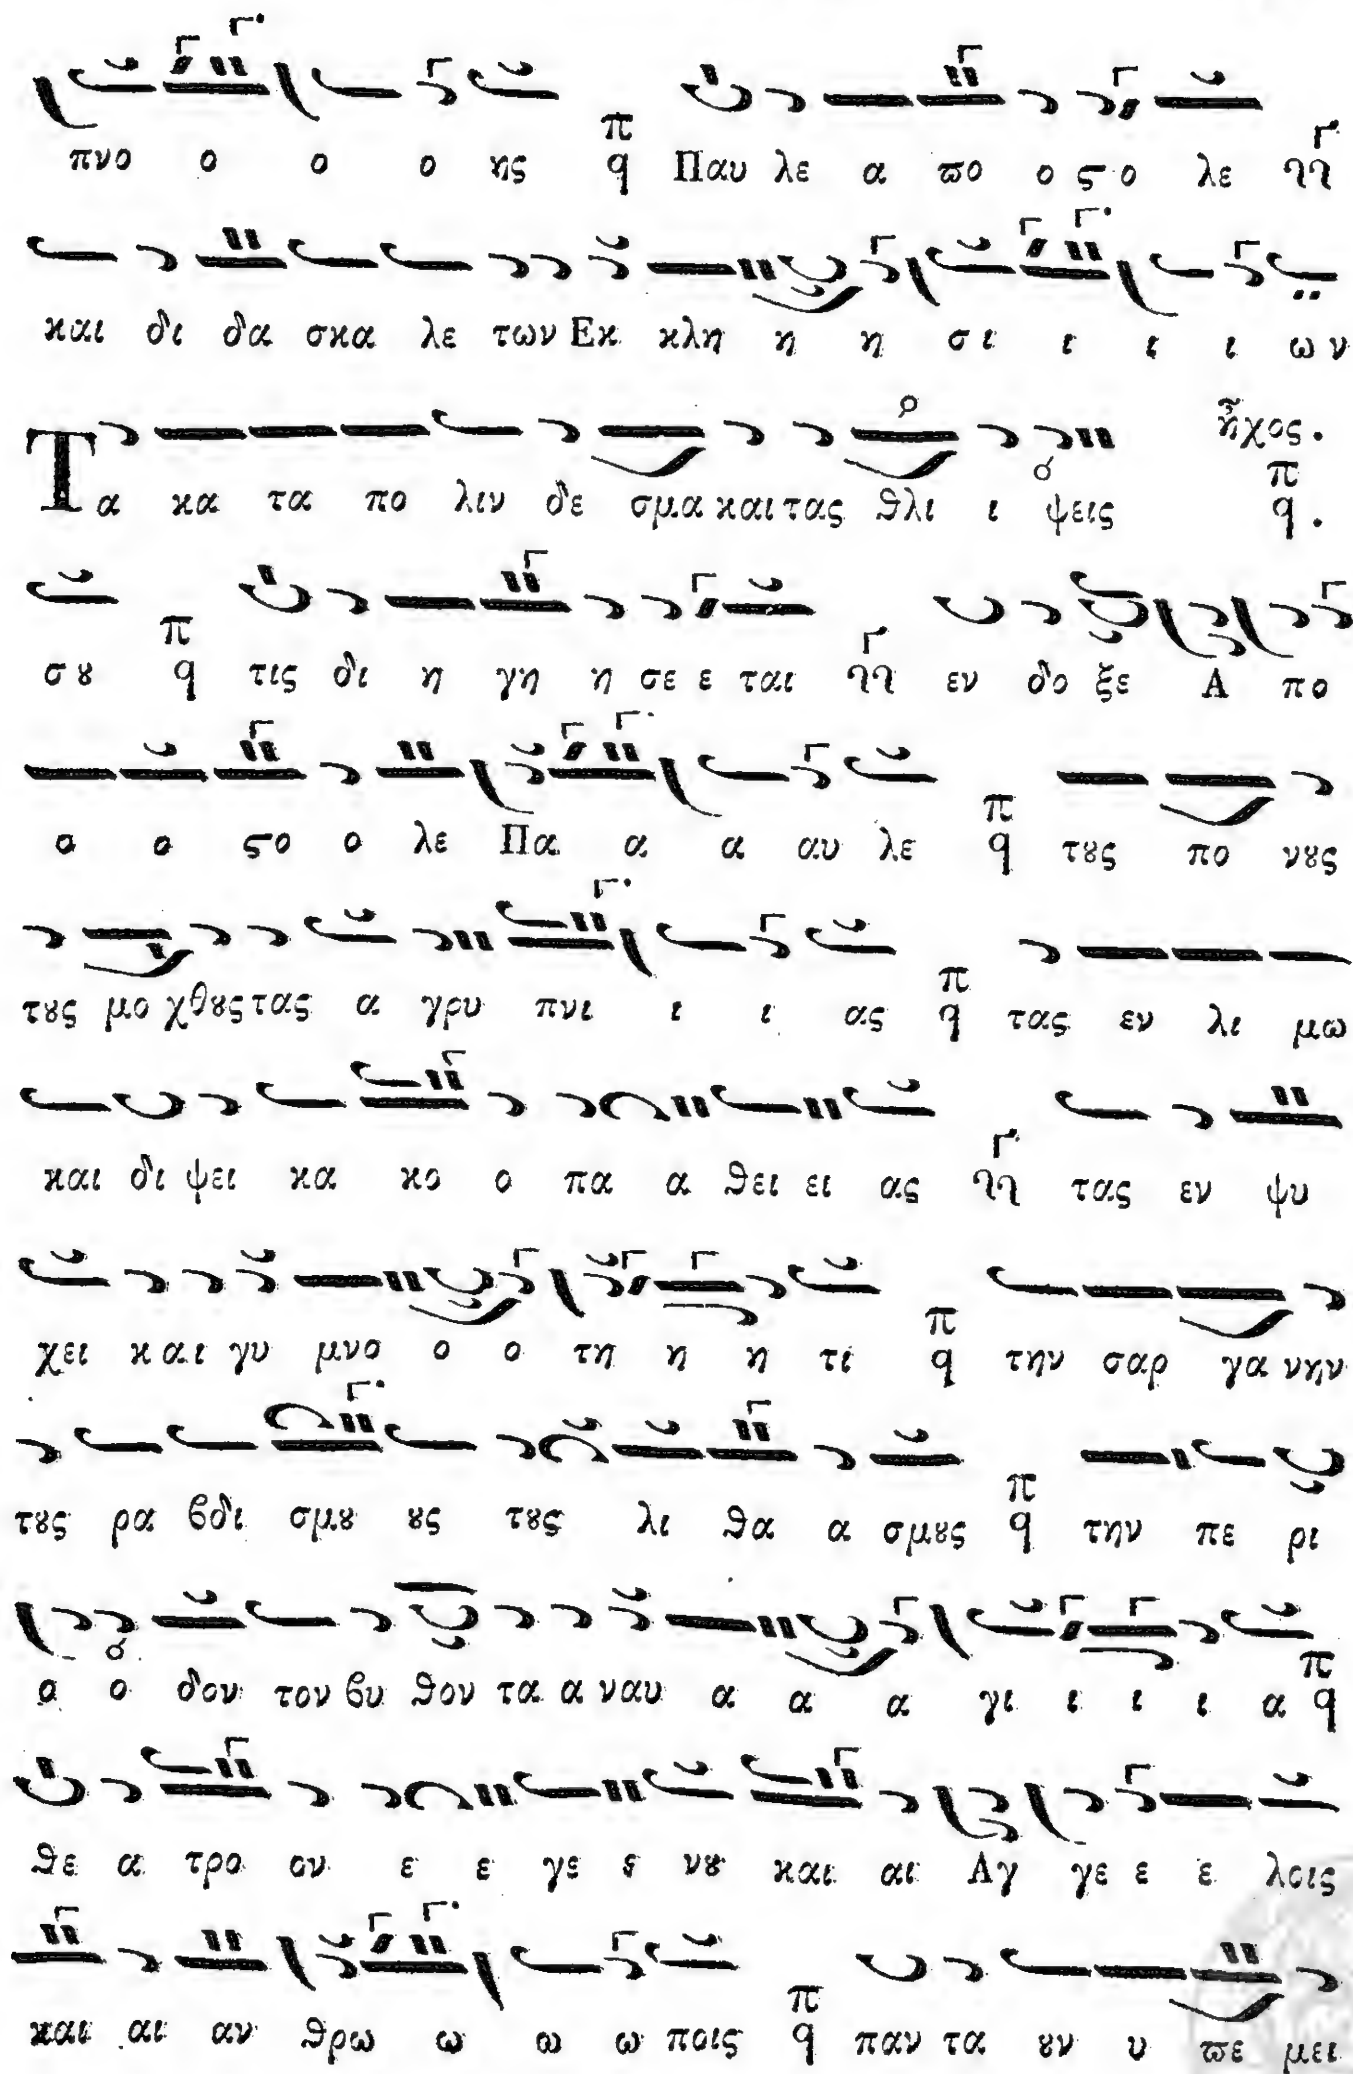 πνο ο ο ο ης π q Παυ λε α ϖο ο ϛο λε
και δι δα σκα λε των Εκ κλη η η σι ι ι ι ων
Τα κα τα πο λιν δε σμα και τας ϑλι ι ψεις ἦχος. π q.
σȣ π q τις δι η γη η σε ε ται εν δο ξε Α πο
ο ο ϛο ο λε Πα α α αυ λε π q τȣς πο νȣς
τȣς μο χθȣς τας α γρυ πνι ι ι ας π q τας εν λι μω
και δι ψει κα κο ο πα α ϑει ει ας τας εν ψυ
χει και γυ μνο ο ο τη η η τι π q την σαρ γα νην
τȣς ρα βδι σμȣ ȣς τȣς λι ϑα α σμȣς π q την πε ρι
ο ο δον τον βυ ϑον τα α ναυ α α α γι ι ι ι α π q
ϑε α τρο ον ε ε γε ε νȣ και αι Αγ γε ε ε λοις
και αι αν ϑρω ω ω ω ποις π q παν τα ȣν υ ϖε μει